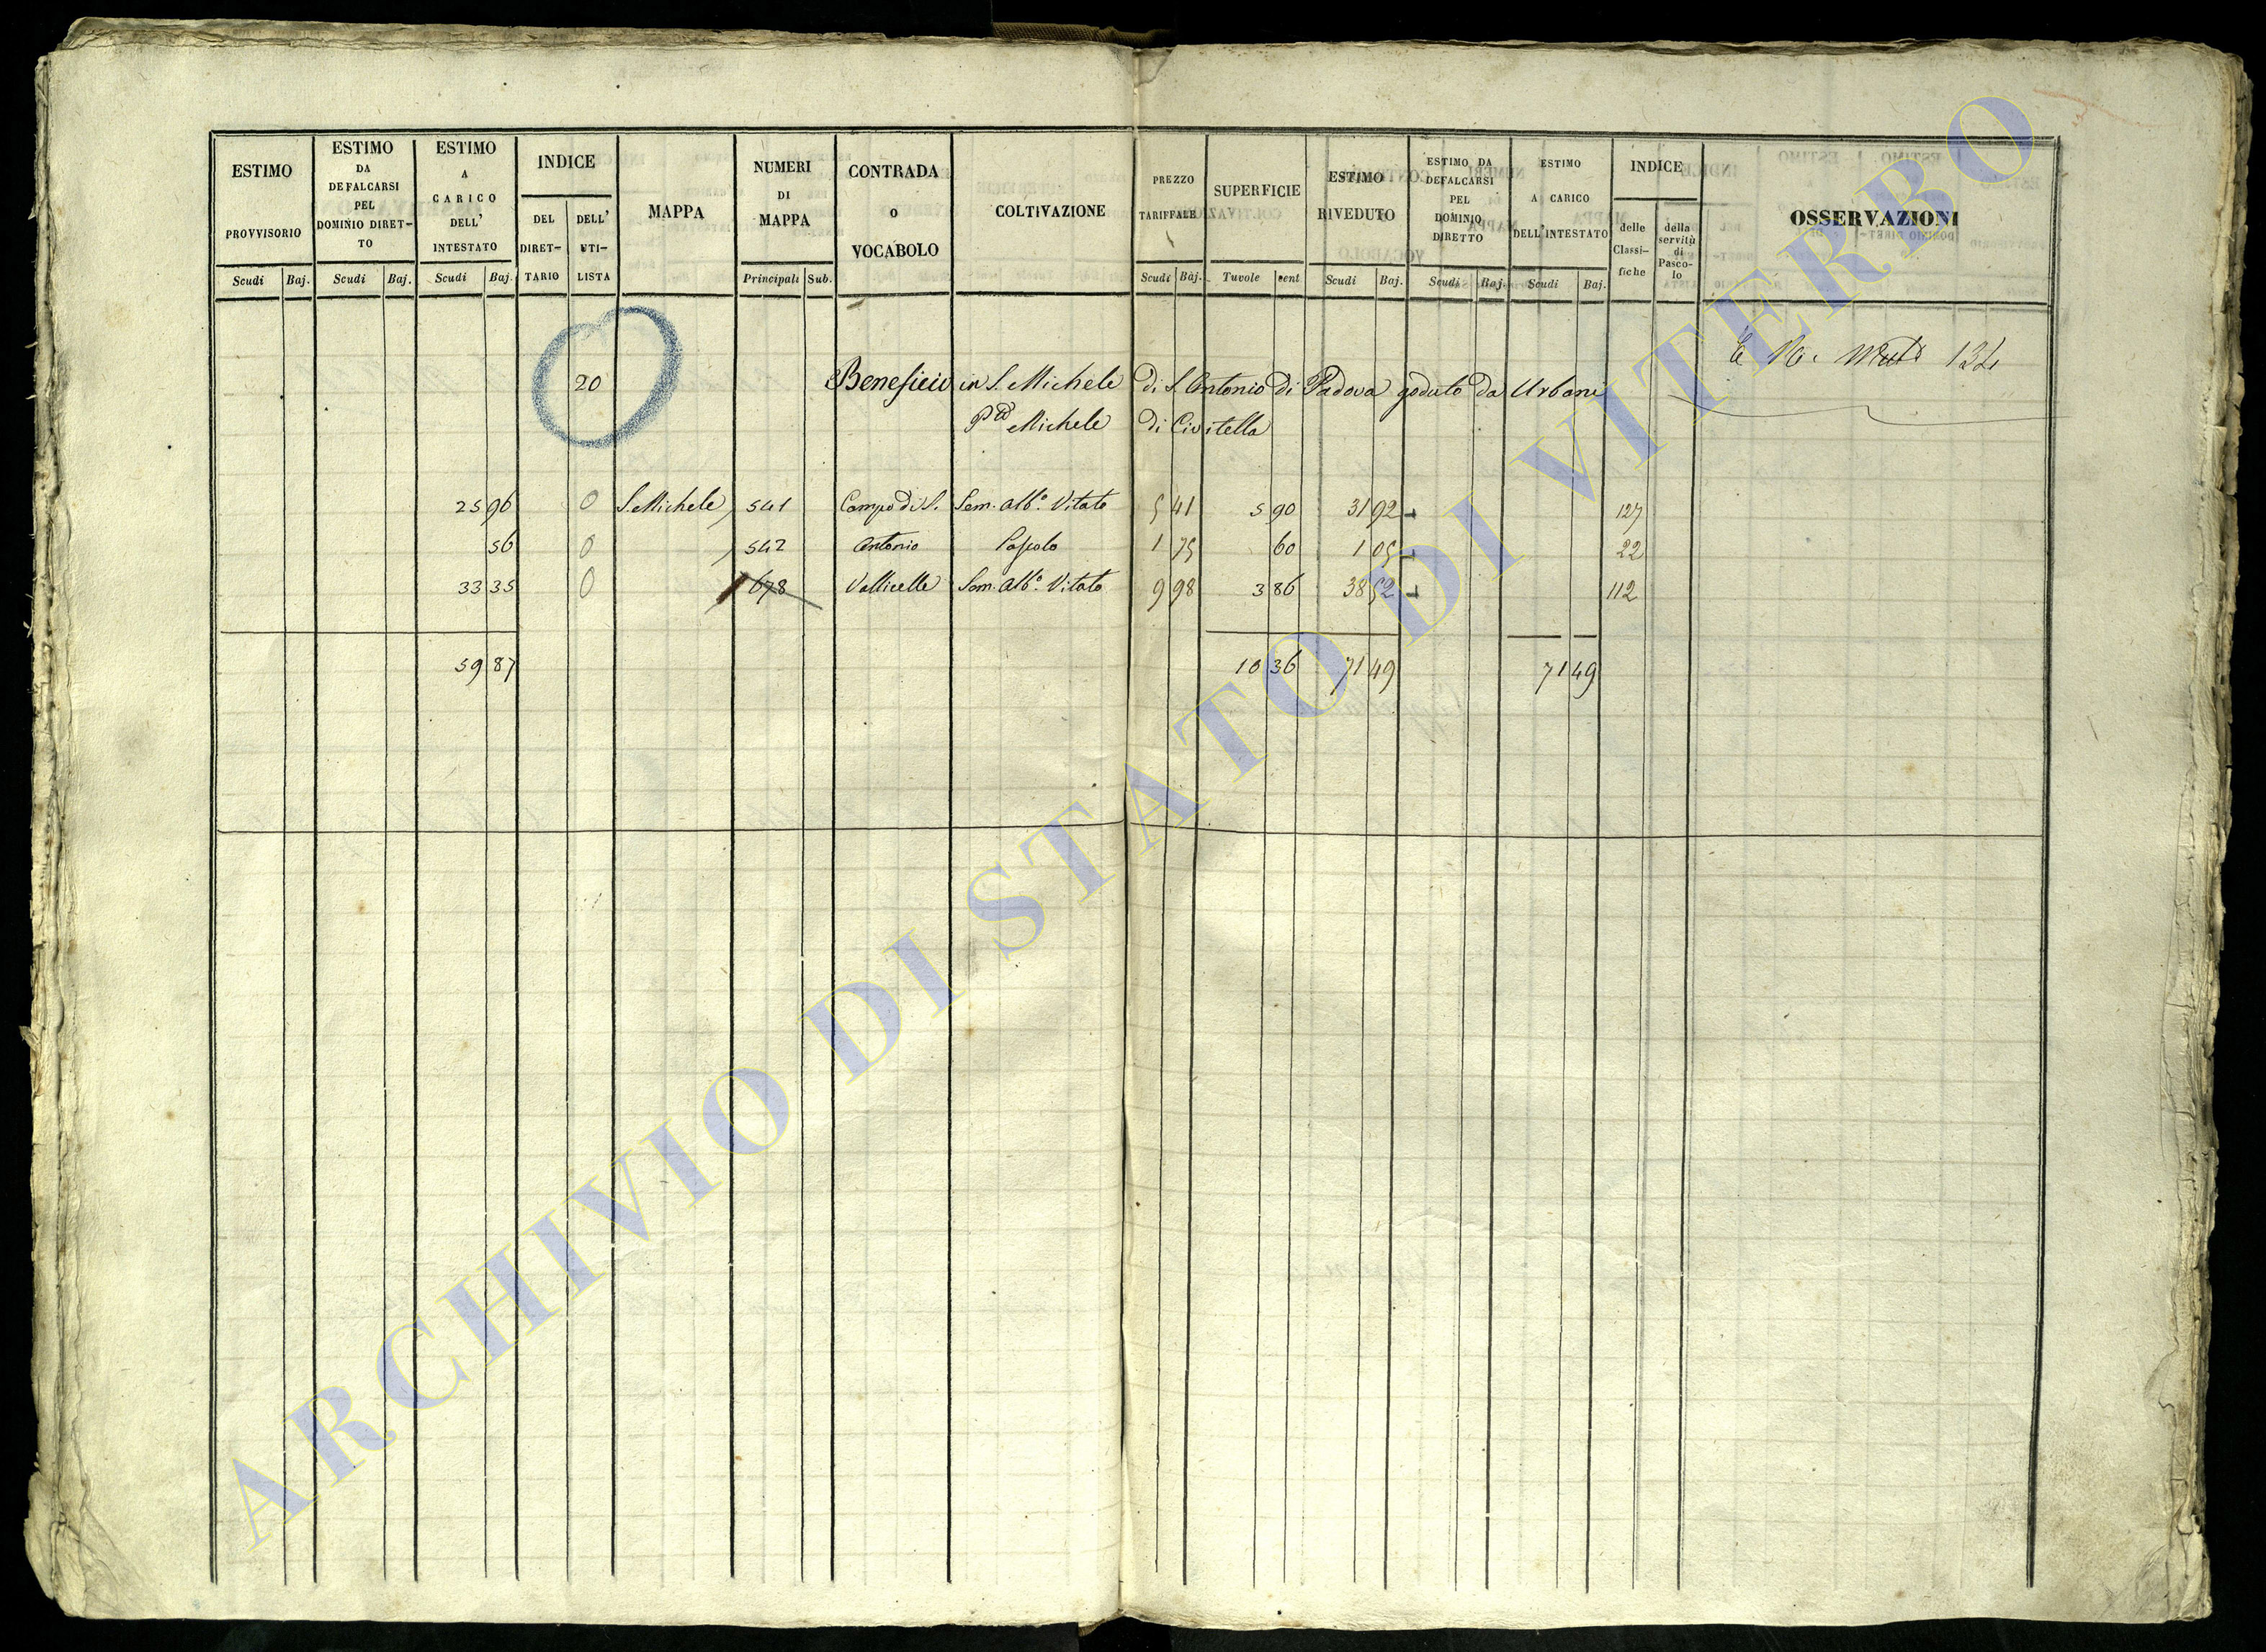 ESTIMO PROVVISORIO
ESTIMO DA DEFALCARSI PEL DOMINIO DIRET-TO
ESTIMO A CARICO DELL' INTESTATO
INDICE
DEL DIRET-TARIO
DELL' UTI-LISTA
MAPPA
NUMERI DI MAPPA
CONTRADA O VOCABOLO
COLTIVAZIONE
PREZZO TARIFFALE
SUPERFICIE
ESTIMO RIVEDUTO
ESTIMO DA DEFALCARSI PEL DOMINIO DIRETTO
ESTIMO A CARICO DELL'INTESTATO
INDICE
delle Classi-fiche
della servitù di Pasco-lo
OSSERVAZIONI
Scudi Baj. Scudi Baj. Scudi Baj. Principali Sub. Scudi Baj. Tavole cent Scudi Baj. Scudi Baj. Scudi Baj.
134
20 Beneficio in S. Michele di S. Antonio di Padova goduto da Urbani
Michele di Civitella
25 96 0 S. Michele 541 Campo di S. Sem. Alb.º Vitato 5 41 5 90 31 92 127
56 0 542 Antonio Pascolo 1 75 60 1 05 22
33 35 0 678 Vallicelle Sem. Alb.º Vitato 9 98 3 86 38 52 112
59 87 10 36 71 49 71 49
ARCHIVIO DI STATO DI VITERBO